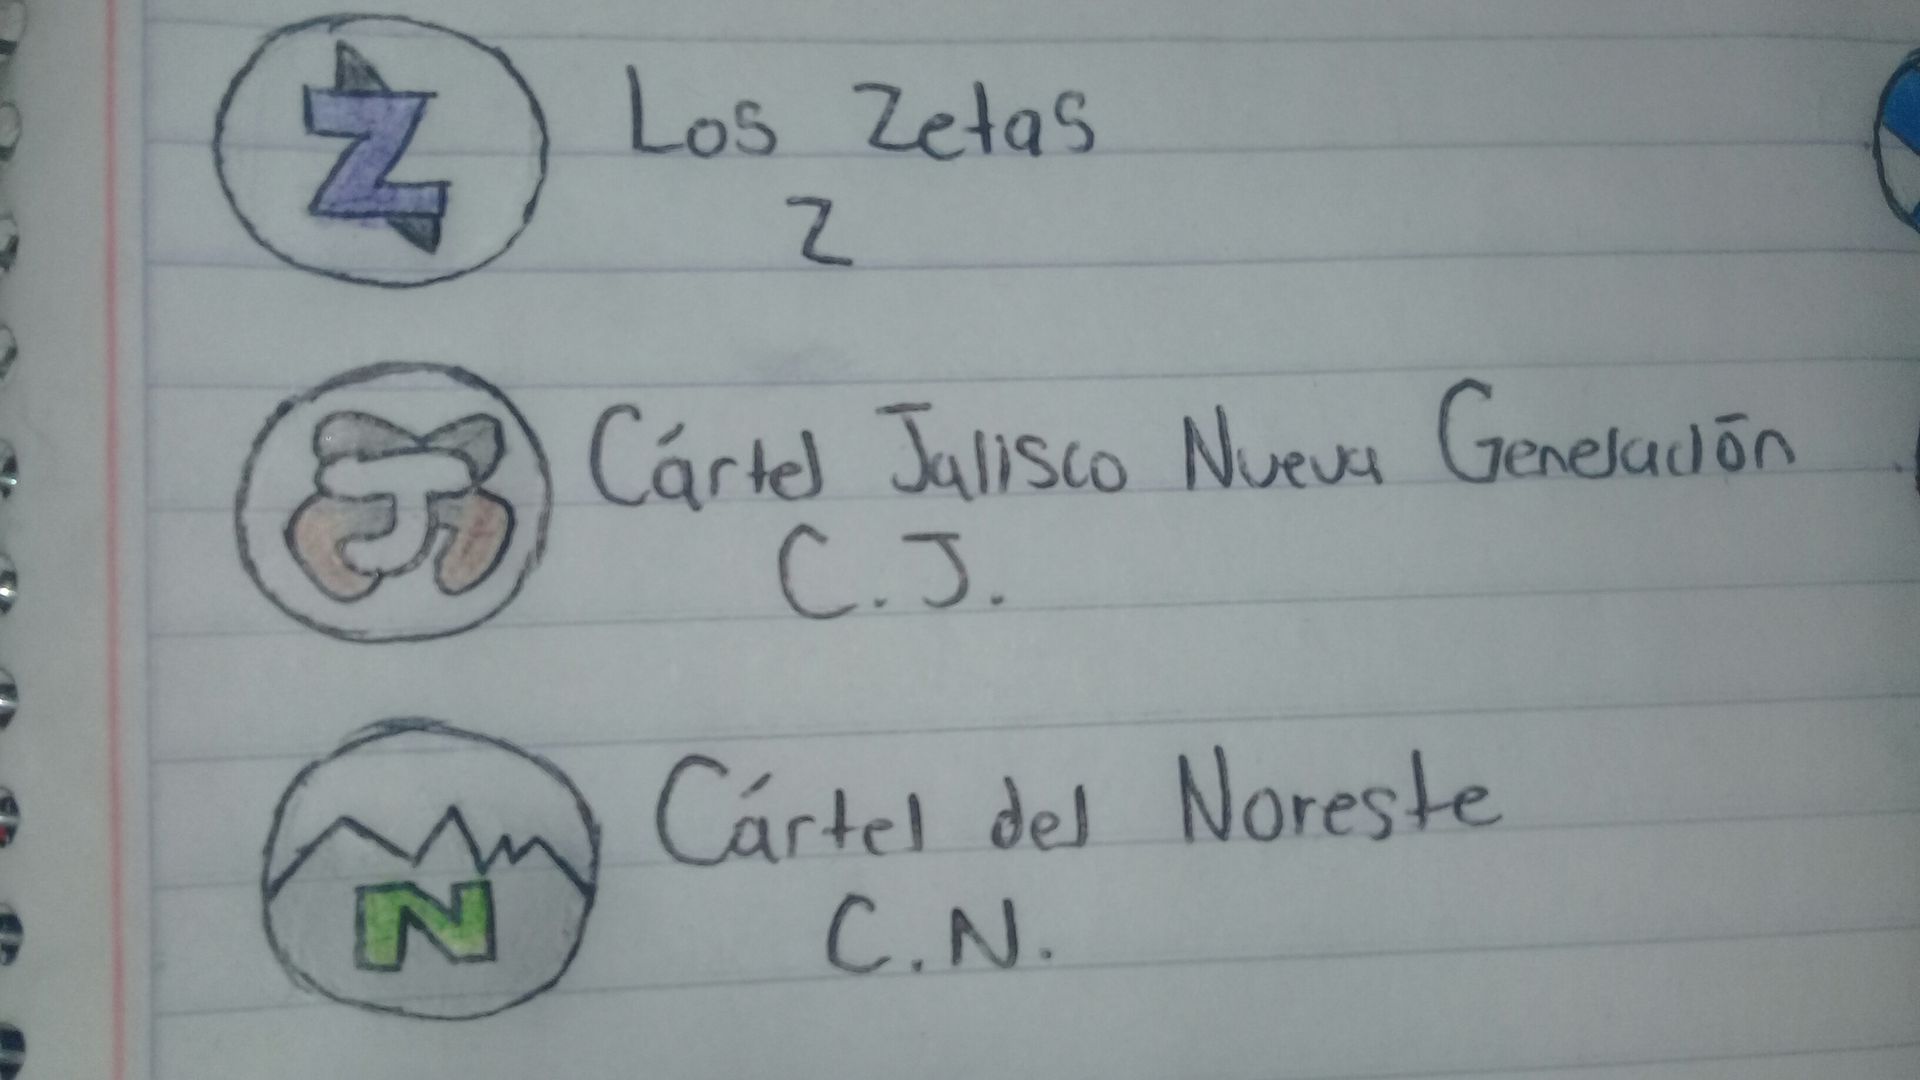 Z
Los Zetas
Z
Cártel Jalisco Nueva Generación
C.J.
N
Cártel del Noreste
C.N.